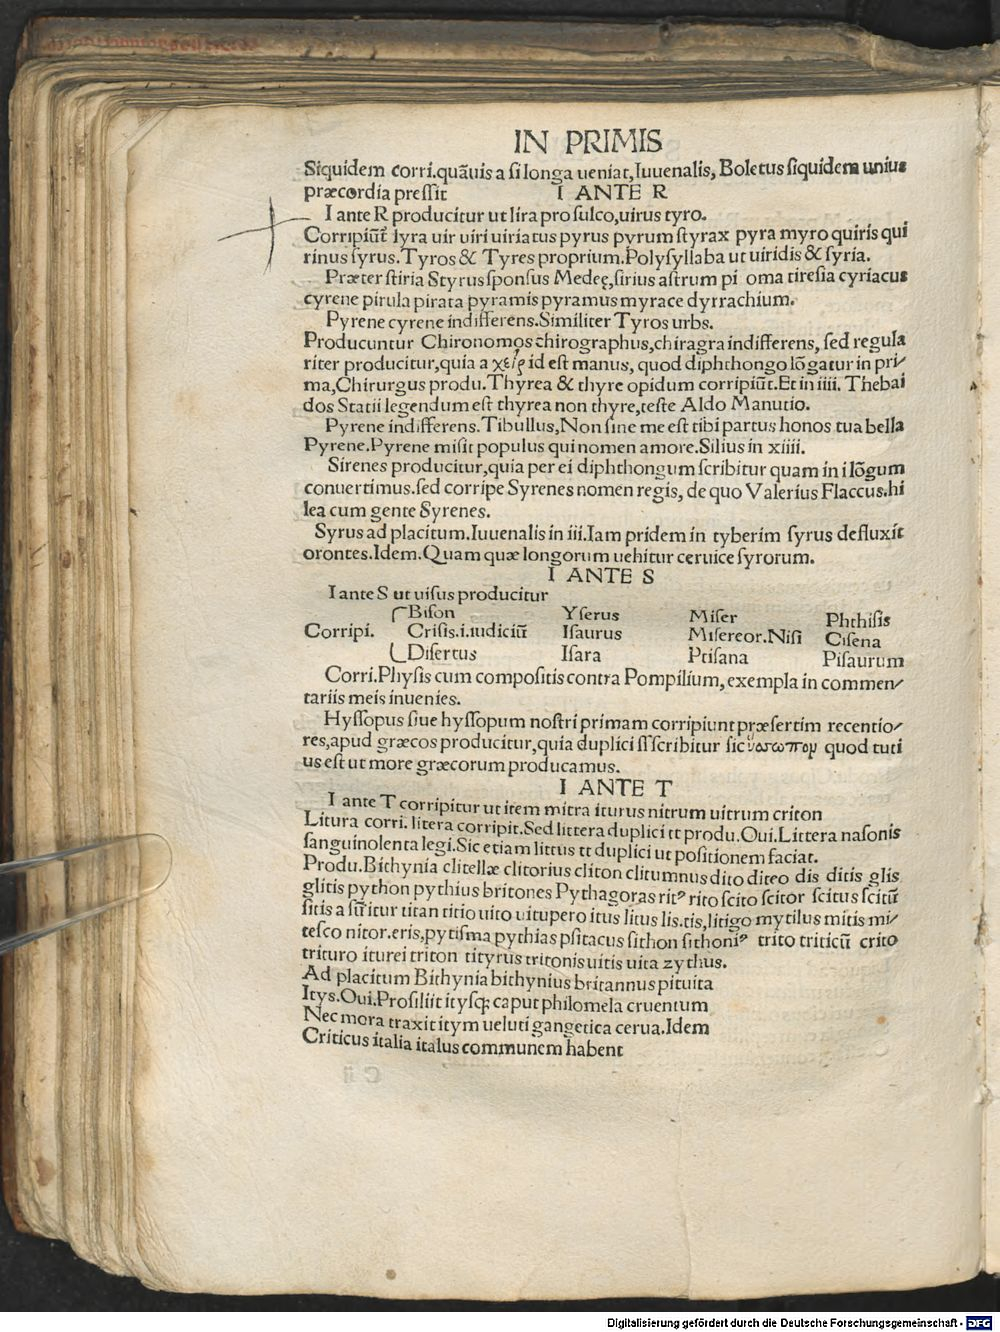 IN PRIMIS
Siquidem corri.quãuis a si longa ueniat, Iuuenalis, Boletus siquidem unius
præcordia pressit I ANTE R
I ante R producitur ut lira pro sulco,uirus tyro.
Corripiũt lyra uir uiri uiriatus pyrus pyrum styrax pyra myro quiris qui
rinus syrus.Tyros & Tyres proprium.Polysyllaba ut uiridis & syria.
Præter stiria Styrus sponsus Medeę,sirius astrum pi oma tiresia cyriacus
cyrene pirula pirata pyramis pyramus myrace dyrrachium.
Pyrene cyrene indifferens.Similiter Tyros urbs.
Producuntur Chironomos chirographus,chiragra indifferens, sed regula
riter producitur,quia a χειρ id est manus, quod diphthongo lõgatur in pri/
ma,Chirurgus produ.Thyrea & thyre opidum corripiũt.Et in iiii. Thebai
dos Statii legendum est thyrea non thyre,teste Aldo Manutio.
Pyrene indifferens.Tibullus,Non sine me est tibi partus honos tua bella
Pyrene.Pyrene misit populus qui nomen amore.Silius in xiiii.
Sirenes producitur,quia per ei diphthongum scribitur quam in i lõgum
conuertimus.sed corripe Syrenes nomen regis, de quo Valerius Flaccus.hi
lea cum gente Syrenes.
Syrus ad placitum.Iuuenalis in iii.Iam pridem in tyberim syrus defluxit
orontes.Idem.Quam quæ longorum uehitur ceruice syrorum.
I ANTE S
I ante S ut uisus producitur
Bison Yserus Miser Phthisis
Corripi. Crisis.i.iudiciũ Isaurus Misereor.Nisi Cisena
Disertus Isara Ptisana Pisaurum
Corri.Physis cum compositis contra Pompilium, exempla in commen/
tariis meis inuenies.
Hyssopus siue hyssopum nostri primam corripiunt præsertim recentio/
res,apud græcos producitur,quia duplici ss scribitur sic ὕσσωπον quod tuti
us est ut more græcorum producamus.
I ANTE T
I ante T corripitur ut item mitra iturus nitrum uitrum criton
Litura corri. litera corripit.Sed littera duplici tt produ.Oui.Littera nasonis
sanguinolenta legi.Sic etiam littus tt duplici ut positionem faciat.
Produ.Bithynia clitellæ clitorius cliton clitumnus dito diteo dis ditis glis
glitis python pythius britones Pythagoras ritꝰ rito scito scitor scitus scitũ
sitis a sũ itur titan titio uito uitupero itus litus lis.tis,litigo mytilus mitis mi/
tesco nitor.eris,pytisma pythias psitacus sithon sithoniꝰ trito triticũ crito
trituro iturei triton tityrus tritonis uitis uita zythus.
Ad placitum Bithynia bithynius britannus pituita
Itys.Oui.Prosiliit itysq; caput philomela cruentum
Nec mora traxit itym ueluti gangetica cerua.Idem
Criticus italia italus communem habent
Digitalisierung gefördert durch die Deutsche Forschungsgemeinschaft - DFG